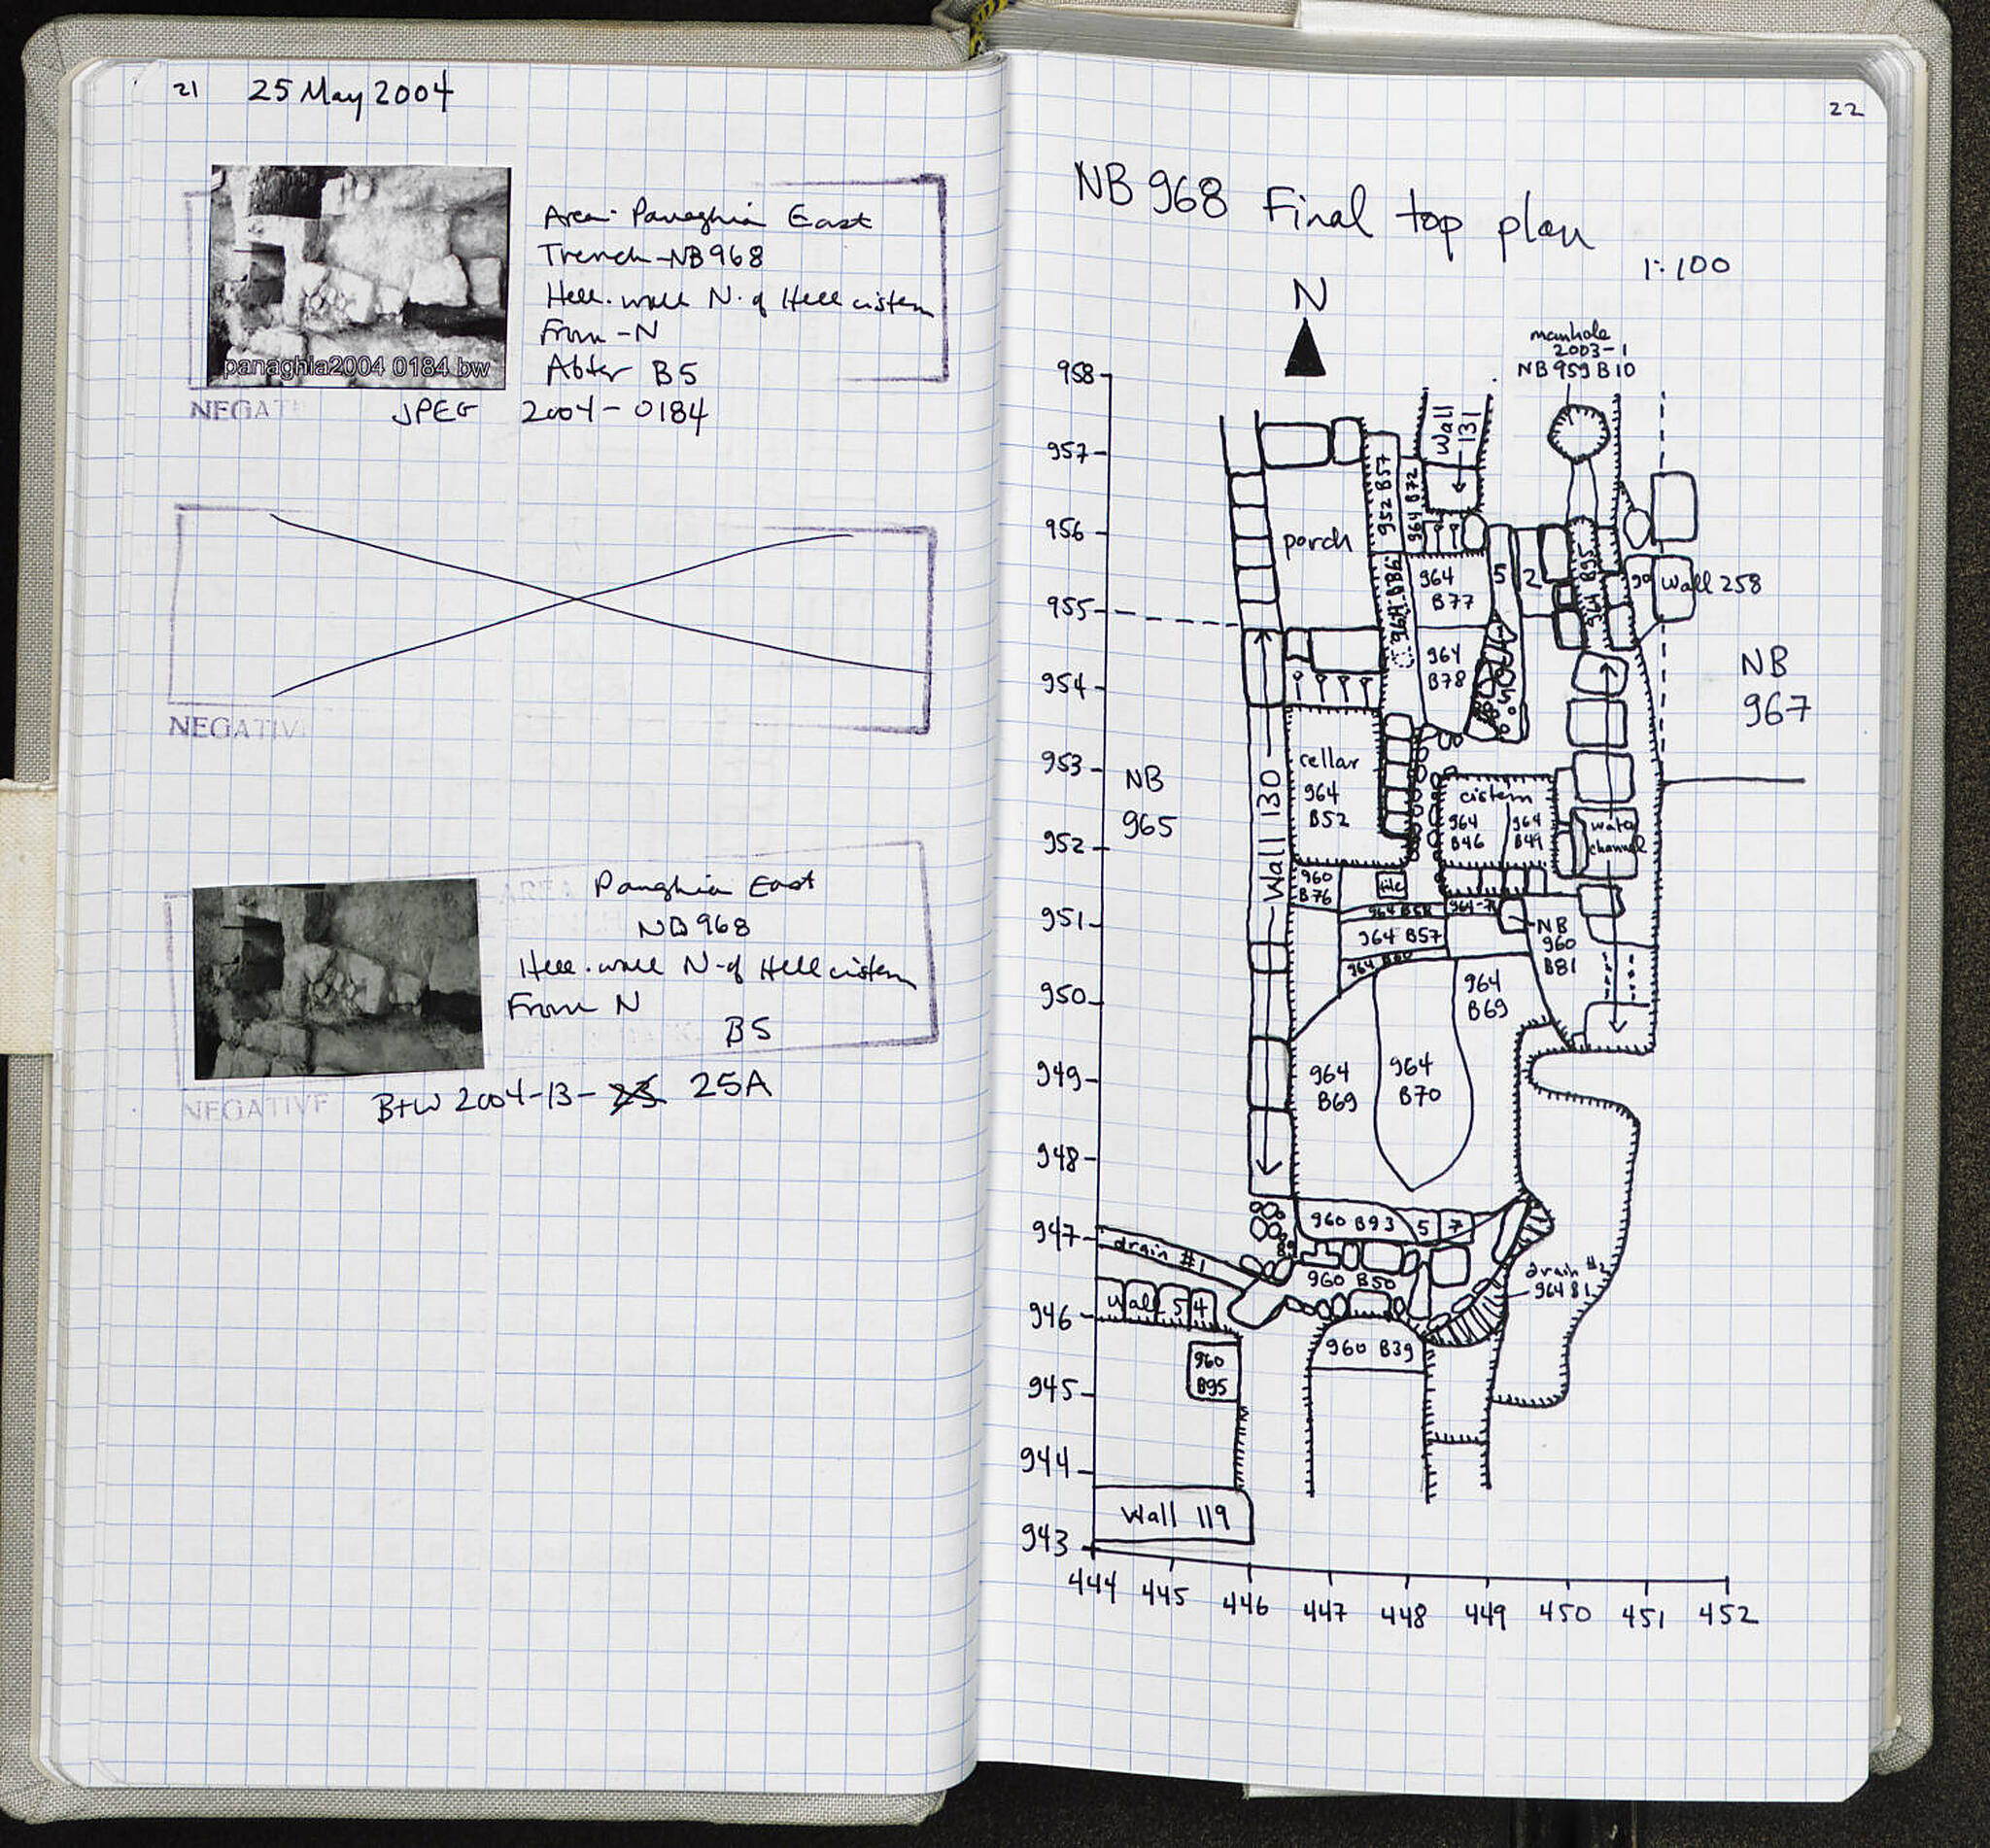 21 25 May 2004
Area: Panaghia East
Trench-NB968
Hell. wall N. of Hell cistern
From -N
After B5
panaghia2004 0184 bw
NEGATI
JPEG 2004-0184
NEGATIV
AREA
Panghia East
NB968
Hell. wall N. of Hell cistern
From N
B5
NEGATIVE
B+W 2004-13- 25A
22
NB 968 Final top plan
1:100
N
manhole
2003-1
NB 959 B10
958
957
956
955
954
953
952
951
950
949
948
947
946
945
944
943
Wall 131
952 B57
964 B72
porch
964
B77
5
2
964 B95
Wall 258
964
B78
NB
967
NB
965
Wall 130
cellar
964
B52
cistern
964
B46
964
B49
water
channel
960
B76
tile
964 B57
NB
960
B81
964
B69
964
B69
964
B70
960 B93
5
7
drain #1
960 B50
drain #2
964 B1
Wall 54
960 B39
960
B95
Wall 119
444 445 446 447 448 449 450 451 452